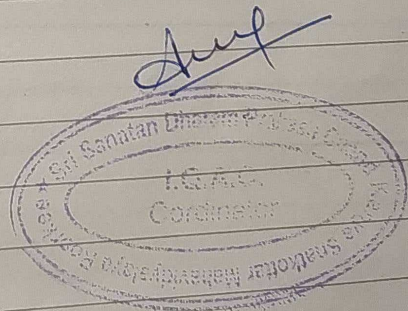 Sri Sanatan Dharam Prakash Chand Kanya Snatkottar Mahavidyalaya Roorkee
I.Q.A.C.
Cordinator